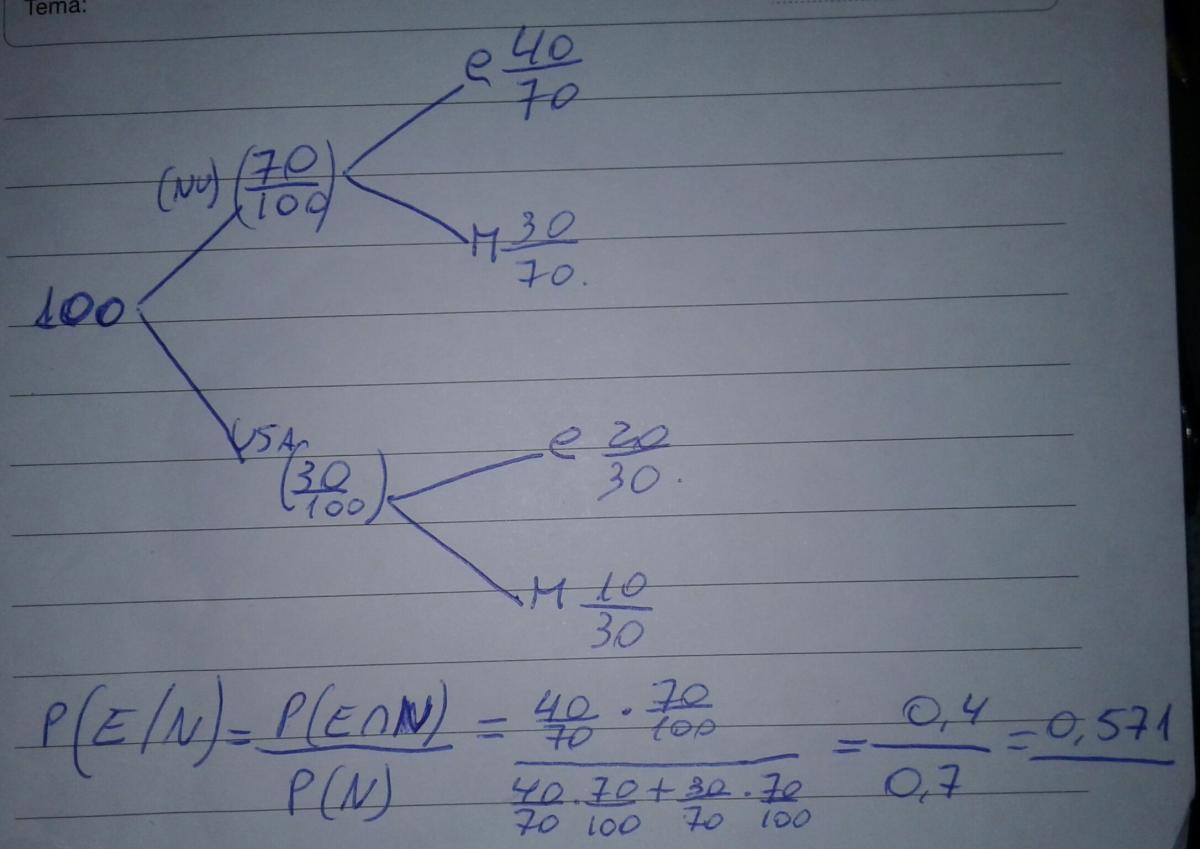 Tema:
e 40/70
(NU) (70/100)
M 30/70.
100
USA (30/100)
e 20/30.
M 10/30
P(E/N) = P(E∩N)/P(N) = (40/70 · 70/100)/(40/70 · 70/100 + 30/70 · 70/100) = 0,4/0,7 = 0,571